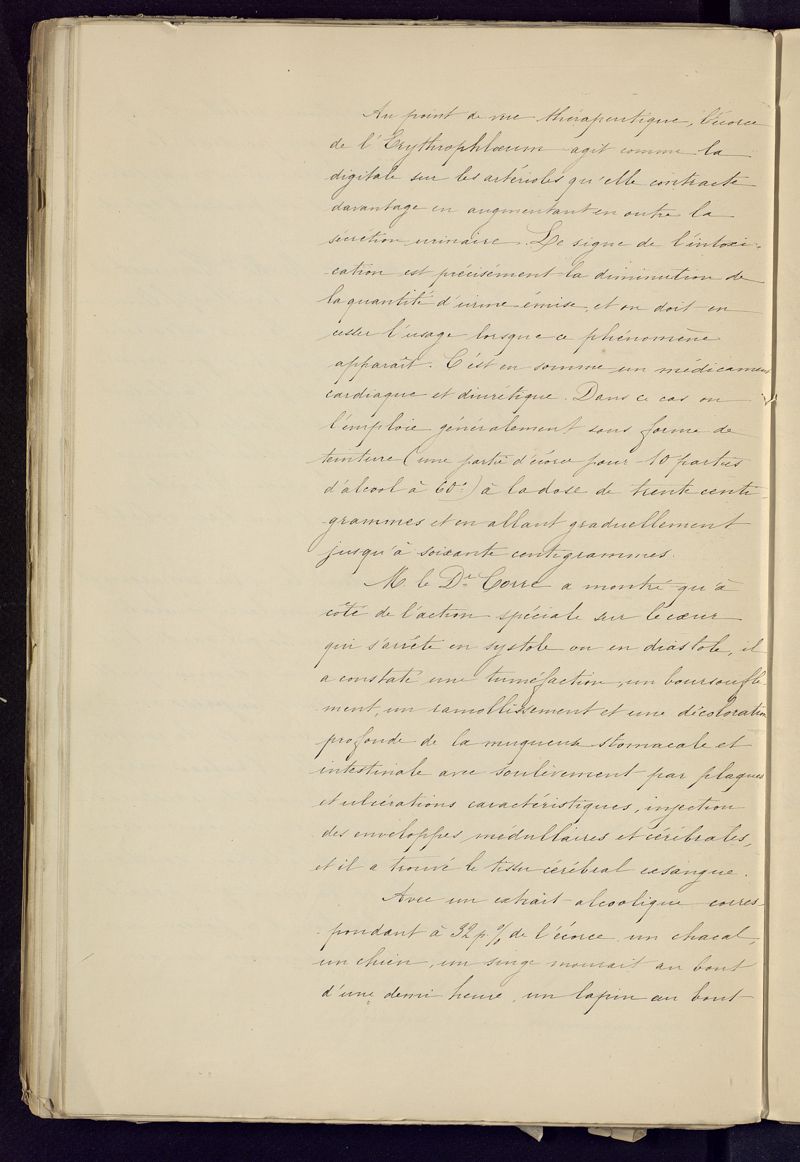 Au point de vue thérapeutique, l'écorce
de l'Erythrophlœum agit comme la
digitale sur les artérioles qu'elle contracte
davantage en augmentant en outre la
sécrétion urinaire. Le signe de l'intoxi-
cation est précisément la diminution de
la quantité d'urine émise, et on doit en
cesser l'usage lorsque ce phénomène
apparaît. C'est en somme un médicament
cardiaque et diurétique. Dans ce cas on
l'emploie généralement sous forme de
teinture (une partie d'écorce pour 10 parties
d'alcool à 60°) à la dose de trente centi-
grammes et en allant graduellement
jusqu'à soixante centigrammes.
M. le Dr Corre a montré qu'à
côté de l'action spéciale sur le cœur
qui s'arrête en systole ou en diastole, il
a constaté une tuméfaction, un boursoufle-
ment, un ramollissement et une décoloration
profonde de la muqueuse stomacale et
intestinale avec soulèvement par plaques
et ulcérations caractéristiques, injection
des enveloppes médullaires et cérébrales,
et il a trouvé le tissu cérébral exsangue.
Avec un extrait alcoolique corres-
pondant à 32 p % de l'écorce un chacal,
un chien, un singe mourait au bout
d'une demi heure, un lapin au bout